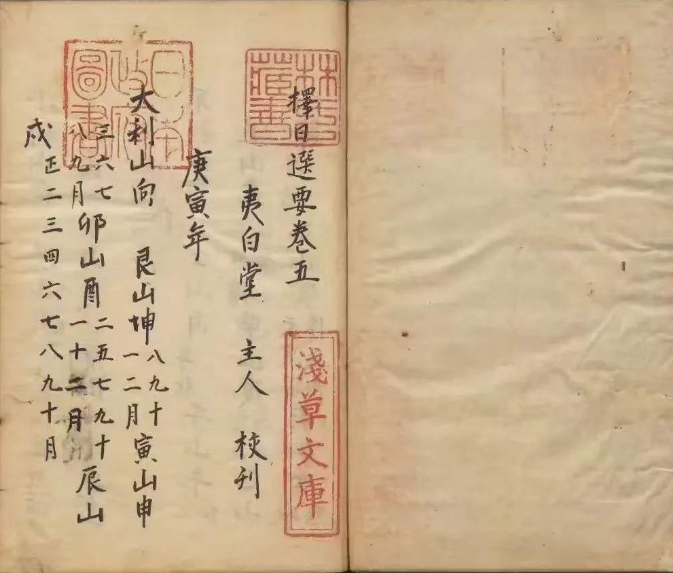 擇日選要卷五
夷白堂 主人 校刊
庚寅年
大利山向 艮山坤 八九十一二月 寅山申
三六七八九月 卯山酉 二五七九十一十二月 辰山
戌 正二三四六七八九十月
林氏藏書
淺草文庫
日本政府圖書